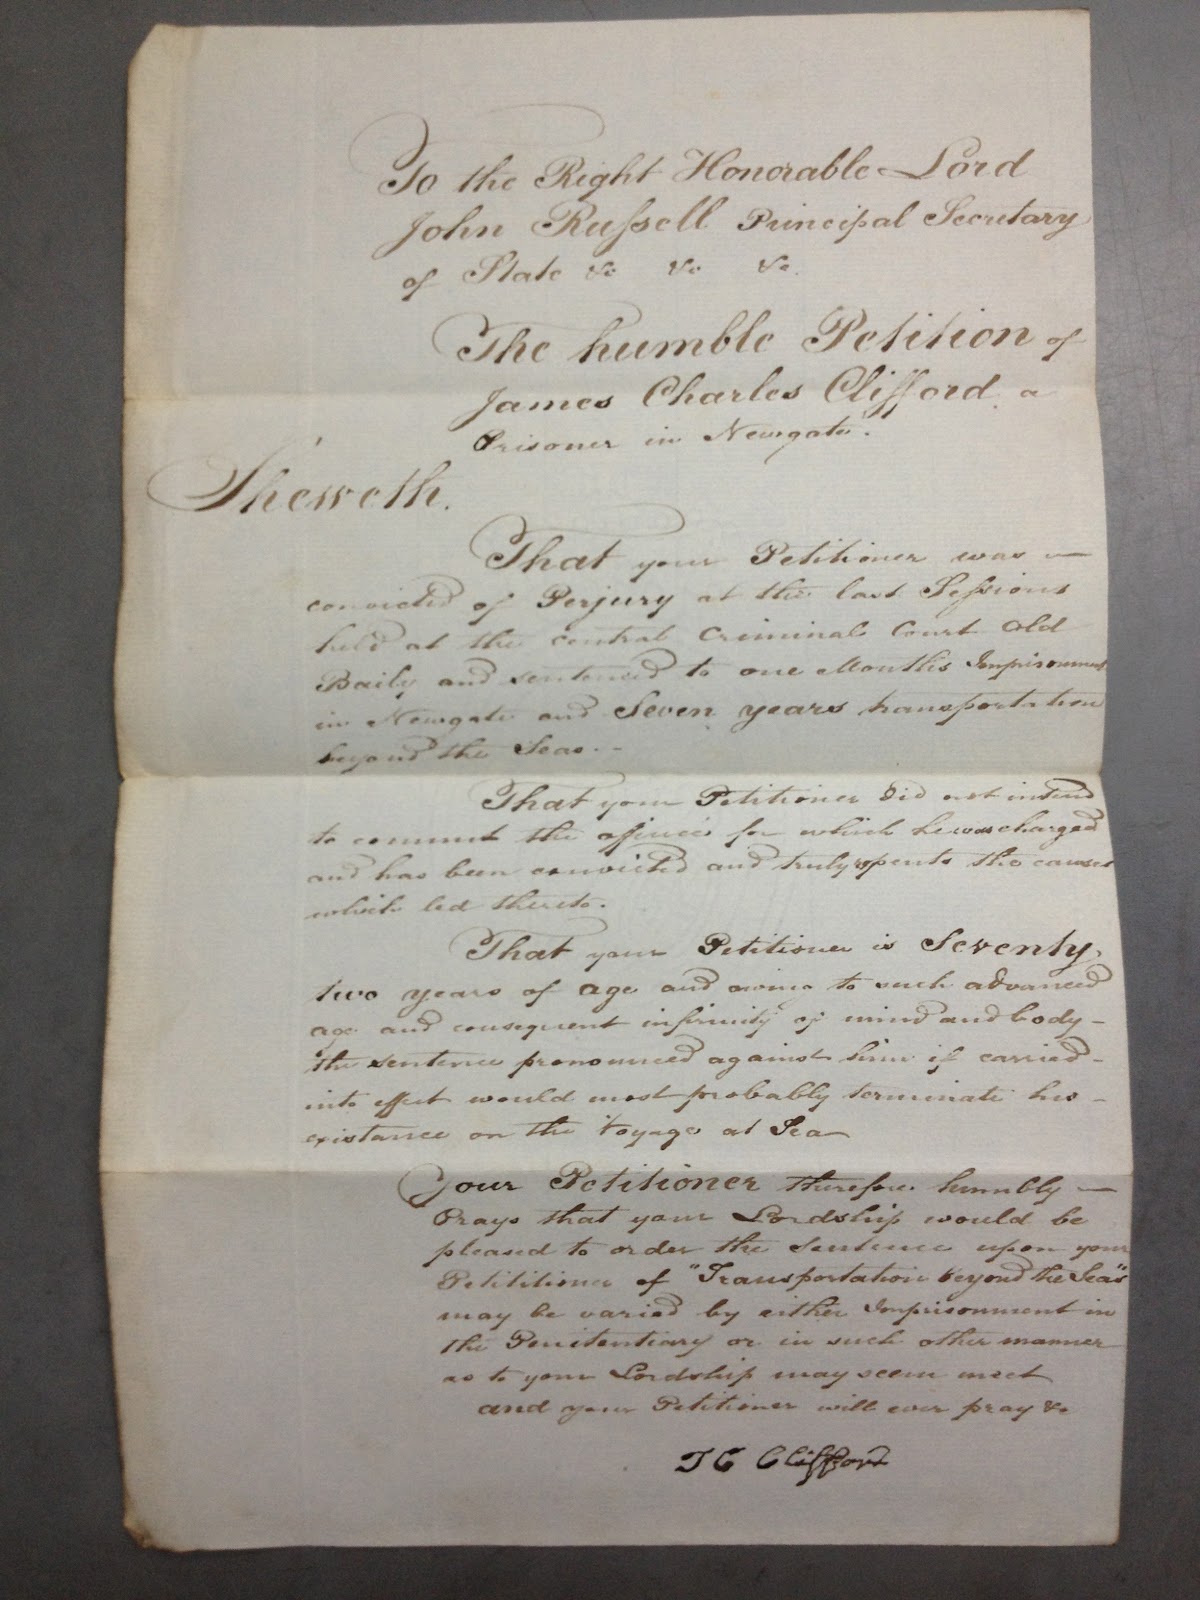 To the Right Honorable Lord
John Russell Principal Secretary
of State &c &c &c.
The humble Petition of
James Charles Clifford a
Prisoner in Newgate.
Sheweth.
That your Petitioner was
convicted of Perjury at the last Sessions
held at the central Criminal Court Old
Baily and sentenced to one Months Imprisonment
in Newgate and Seven years transportation
beyond the Seas.
That your Petitioner did not intend
to commit the offence for which he was charged
and has been convicted and truly repents the causes
which led thereto.
That your Petitioner is Seventy
two years of age and owing to such advanced
age and consequent infirmity of mind and body
the sentence pronounced against him if carried
into effect would most probably terminate his
existance on the Voyage at Sea
Your Petitioner therefore humbly
Prays that your Lordship would be
pleased to order the sentence upon your
Petititioner of "Transportation beyond the Seas"
may be varied by either Imprisonment in
the Penitentiary or in such other manner
as to your Lordship may seem meet
and your Petitioner will ever pray &c
J C Clifford